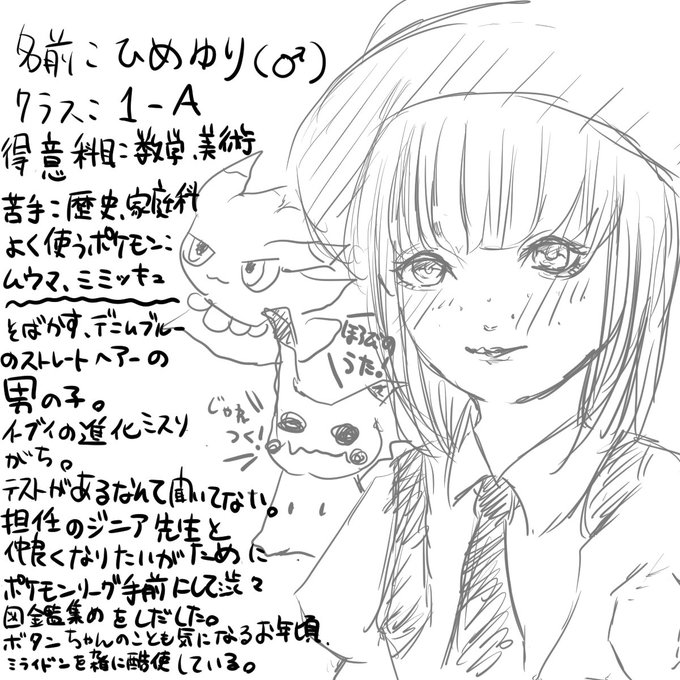 名前:ひめゆり(♂)
クラス:1-A
得意科目:数学、美術
苦手:歴史、家庭科
よく使うポケモン:
ムウマ、ミミッキュ
そばかす、デニムブルー
のストレートヘアーの
男の子。
イーブイの進化ミスり
がち。
テストがあるなんて聞いてない。
担任のジニア先生と
仲良くなりたいがために
ポケモンリーグ手前にして渋々
図鑑集めをしだした。
ボタンちゃんのことも気になるお年頃、
ミライドンを雑に酷使している。
ほろびの
うた。
じゃれ
つく!